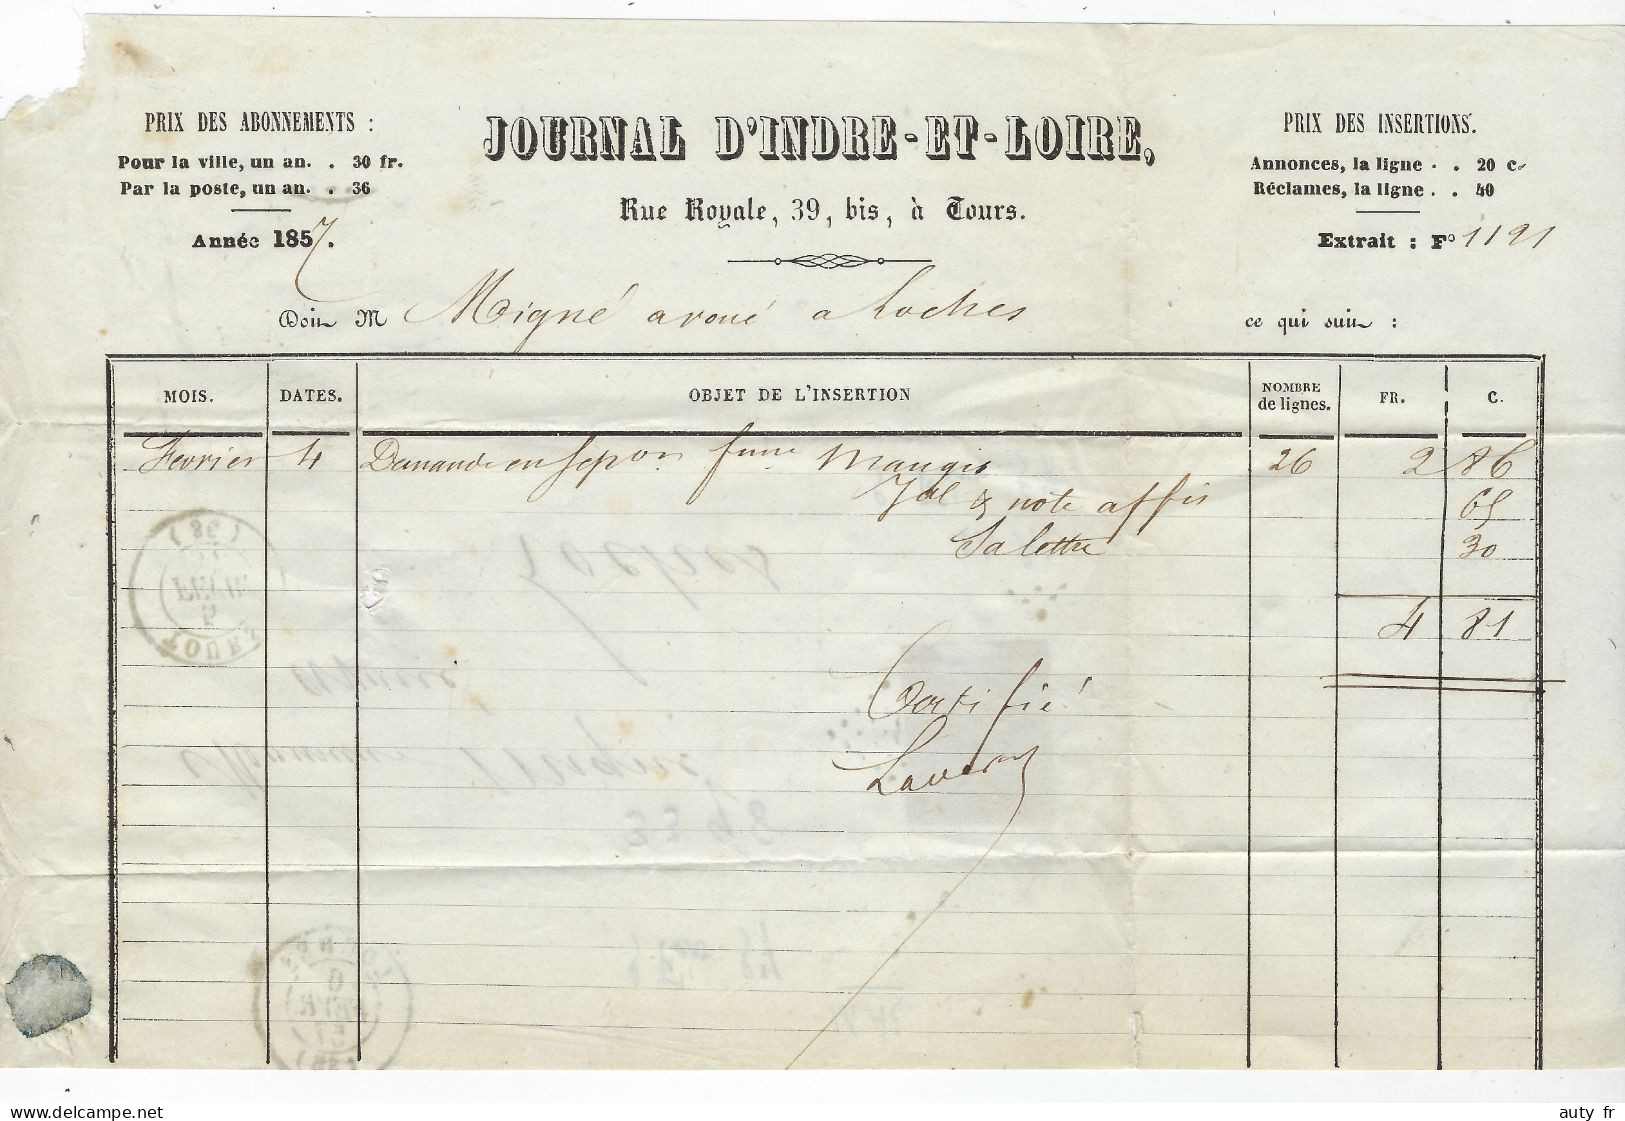 PRIX DES ABONNEMENTS :
Pour la ville, un an. . 30 fr.
Par la poste, un an. . 36
Année 1857.
JOURNAL D'INDRE-ET-LOIRE,
Rue Royale, 39, bis, à Tours.
PRIX DES INSERTIONS.
Annonces, la ligne . . 20 c.
Réclames, la ligne . . 40
Extrait : Fo 1121
Doit M Migné avoué a Loches ce qui suit :
MOIS. DATES. OBJET DE L'INSERTION NOMBRE de lignes. FR. C.
Fevrier 4 Demande en sepon fme Maugis 26 2 86
Jal & note affis 65
Sa lettre 30
4 81
Certifié
(36)
TOURS
auty_fr
www.delcampe.net